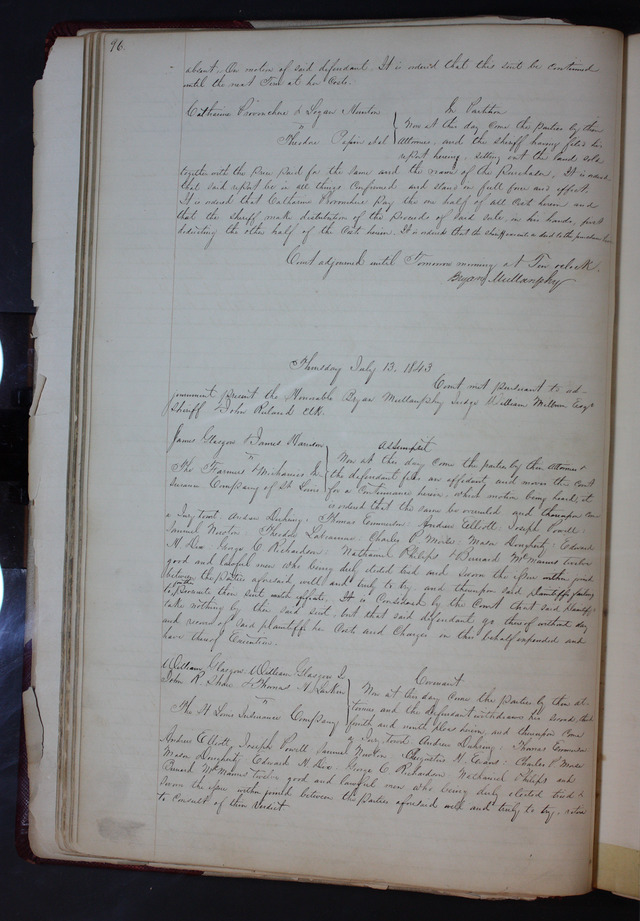 96.
absent. On motion of said defendant. It is ordered that this suit be continued
until the next Term at her Costs.
Catharine Provenchere & Logan Hunton
In Partition
vs
Theodore Papin et al
Now at this day come the parties by their
Attornies, and the sheriff having filed his
report herein, setting out the lands sold
together with the price paid for the same and the name of the Purchasers, It is ordered
that said report be in all things Confirmed and stand in full force and effect.
It is ordered that Catharine Provenchere pay the one half of all Cost herein and
that the Sheriff make distribution of the Proceeds of said sale, in his hands, first
deducting the other half of the Cost herein. It is ordered that the sheriff execute a deed to the purchasers
Court adjourned until Tomorrow morning at Ten oclock
Bryan Mullanphy
Thursday July 13. 1843
Court met pursuant to ad-
journment present the Honorable Bryan Mullanphy Judge William Milburn Esqr
Sheriff & John Ruland Clk.
James Glasgow & James Harrison
Assumpsit
vs
The Farmers & Mechanics In
surance Company of St Louis
Now at this day come the parties by their Attornies &
the defendant files an affidavit and moves the Court
for a Continuance herein, which motion being heard, it
is ordered that the same be overruled and thereupon come
a Jury, to wit, Andrew Duhring, Thomas Edmondson, Andrew Elliott, Joseph Powell,
Samuel Newton, Theodore Labeaume, Charles P. Morles, Mason Dougherty, Edward
H. Dix, George C. Richardson, Nathaniel Philips & Bernard McManus twelve
good and lawful men who being duly elected tried and sworn the issue within joined
between the parties aforesaid well and truly to try and thereupon said plaintiffs failing
to further prosecute their suit with effect. It is Considered by the Court that said plaintiffs
take nothing by their said suit, but that said defendant go thereof without day
and recover of said plaintiffs her Costs and Charges in this behalf expended and
have thereof Execution.
William Glasgow, William Glasgow Jr
John R. Shaw & Thomas H. Larkin
Covenant
vs
The St Louis Insurance Company
Now at this day come the parties by their at-
tornies and the defendant withdraws his second, third
fourth and ninth pleas herein, and thereupon come
a Jury, to wit, Andrew Duhring, Thomas Edmondson
Andrew Elliott, Joseph Powell, Samuel Newton, Augustus H. Evans, Charles P. Morles
Mason Dougherty, Edward H. Dix, George C. Richardson, Nathaniel Philips and
Bernard McManus twelve good and lawful men who being duly elected tried &
sworn the issue within joined between the parties aforesaid well and truly to try, retire
to Consult of their Verdict